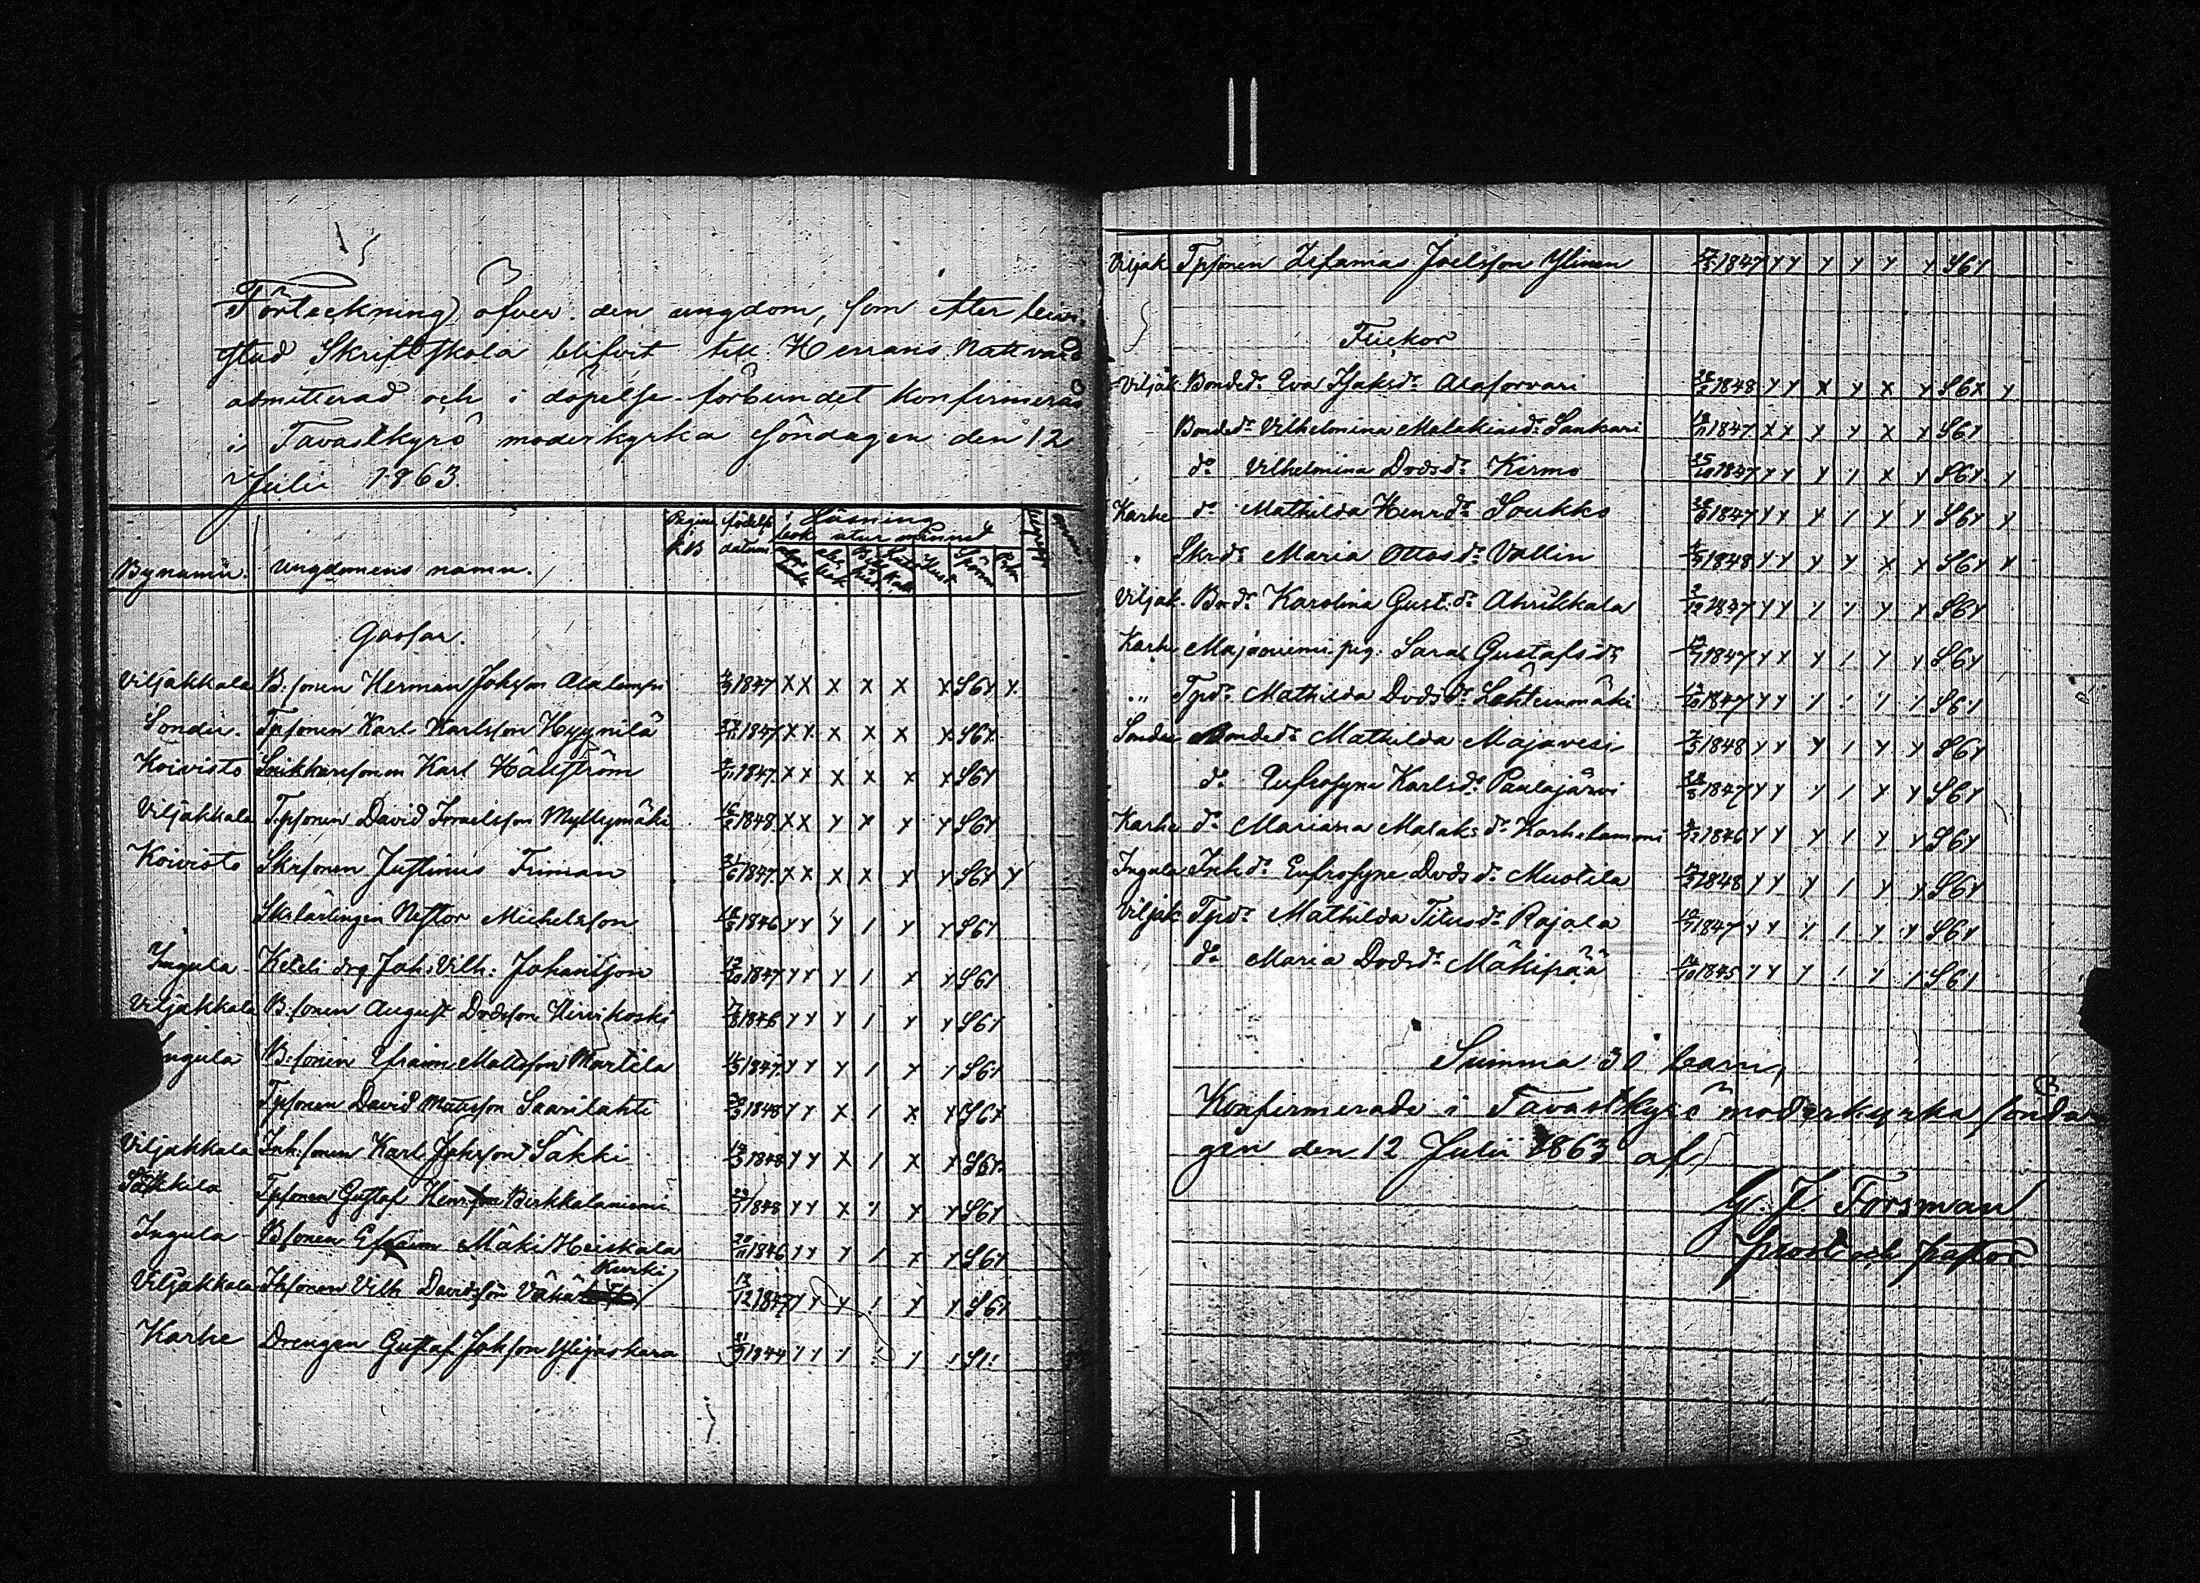 Förteckning öfver den ungdom, som efter bevi-
stad Skriftskola blifvit till Herrans Nattvard
admitterad och i döpelse-förbundet Konfirmerad
i Tavastkyrö moderkyrka söndagen den 12
Julii 1863
Bynamn. Ungdomens namn. Pagina KB födelse datum Läsning i bok utur minnet
Gossar.
Viljakkala B:sonen Herman Johsson 1847 X X X X X X S6Y Y
Sondii. Tpsonen Karl Karlsson Hyynilä 1847 X X X X X X S6Y
Koivisto Karl Hällström 1847 X X X X X X S6Y
Viljakkala Tpsonen David Israelsson Myllymäki 16/2 1848 X X Y X Y Y S6Y
Koivisto Skrsonen Justinus Friman 1847 X X X X X Y S6Y Y
Skr lärlingen Nestor Michelsson 1846 Y Y Y / Y Y S6Y
Ingula Joh: Vilh: Johansson 12/10 1847 Y Y Y / X Y S6Y
Viljakkala B:sonen August Davdsson Hirvikoski 1846 Y Y Y / Y Y S6Y
Ingula B:sonen Efraim Mattsson Martila 1847 Y Y Y / Y / S6Y
Tpsonen David Mattsson Saarilahti 1848 Y Y X / X X S6X
Viljakkala Inh:sonen Karl Johsson Säkki 1848 Y Y X / X X S6Y
Tpsonen Gustaf Henrsson Pirkkalaniemi 1848 Y Y X Y Y Y S6Y
Ingula Bsonen Efraim Mäki Heiskala 20/11 1846 Y Y Y / X Y S6Y
Kurki
Viljakkala Vilh Davidsson Vähä 13/12 1847 Y Y Y / Y Y S6Y
Karhe Drengen Gustaf Johsson Ylijaskara 1844 / Y / / Y /
Viljak Tpsonen Zefanias Joelsson Ylinen 1847 Y Y Y Y Y Y S6Y
Flickor
Viljak Bondedr Eva Isaksdr 1848 Y Y X Y X Y S6X Y
Bondedr Vilhelmina Malakiasdr Sankari 1847 X X Y Y X Y S6Y
do Vilhelmina Davdsdr Kirmo 25/10 1847 Y Y Y / X Y S6Y Y
Karhe do Mathilda Henrdr Soukko 1847 Y Y Y / Y Y S6Y Y
" Skrdr Maria Ottosdr Vallin 1848 Y Y Y Y X Y S6Y Y
Viljak. Bndr Karolina Gust:dr Ahrikkala 2/12 1847 Y Y Y / Y Y S6Y
Karhe Majaniemi pig. Sara Gustafsdr 1847 Y Y Y / Y Y S6Y
" Tpdr Mathilda Davdsdr Lähteenmäki 1847 Y Y / / / / S6/
Sondii Bondedr Mathilda Majavesi 1848 Y Y Y / Y Y S6Y
do Eufrosyne Karlsdr Paulajärvi 1847 Y Y / / Y Y S6Y
Karhe do Mariana Malaksdr Karheluomi 1846 Y Y Y / Y Y S6Y
Ingula Inhdr Eufrosyne Davdsdr Mustila 1848 Y Y Y / Y Y S6Y
Viljak Tpdr Mathilda Titusdr Rajala 1847 Y Y Y / Y Y S6Y
do Maria Davdsdr Mäkipää 14/10 1845 Y Y Y / Y / S6Y
Summa 30 barn,
Konfirmerade i Tavastkyrö moderkyrka sönda-
gen den 12 Julii 1863 af
G. J. Forsman
prost och pastor.